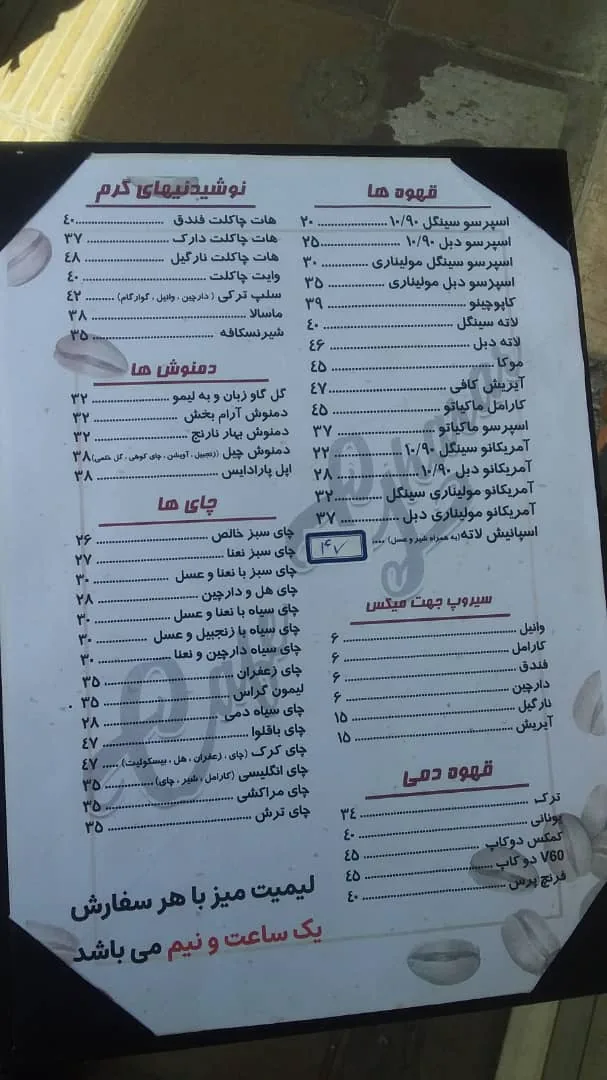 قهوه ها
اسپرسو سینگل ۱۰/۹۰ ........ ۲۰
اسپرسو دبل ۱۰/۹۰ ........ ۲۵
اسپرسو سینگل مولیناری ........ ۳۰
اسپرسو دبل مولیناری ........ ۳۵
کاپوچینو ........ ۳۹
لاته سینگل ........ ۴۰
لاته دبل ........ ۴۶
موکا ........ ۴۵
آیریش کافی ........ ۴۷
کارامل ماکیاتو ........ ۴۵
اسپرسو ماکیاتو ........ ۳۷
آمریکانو سینگل ۱۰/۹۰ ........ ۲۲
آمریکانو دبل ۱۰/۹۰ ........ ۲۸
آمریکانو مولیناری سینگل ........ ۳۲
آمریکانو مولیناری دبل ........ ۳۷
اسپانیش لاته (به همراه شیر و عسل) .... ۴۷
سیروپ جهت میکس
وانیل ........ ۶
کارامل ........ ۶
فندق ........ ۶
دارچین ........ ۶
نارگیل ........ ۱۵
آیریش ........ ۱۵
قهوه دمی
ترک ........ ۳۴
یونانی ........ ۴۰
کمکس دوکاپ ........ ۴۵
V60 دو کاپ ........ ۴۵
فرنچ پرس ........ ۴۰
نوشیدنیهای گرم
هات چاکلت فندق ........ ۴۰
هات چاکلت دارک ........ ۳۷
هات چاکلت نارگیل ........ ۴۸
وایت چاکلت ........ ۴۰
سلپ ترکی (دارچین ، وانیل ، گوارگام) ........ ۴۲
ماسالا ........ ۳۸
شیرنسکافه ........ ۳۵
دمنوش ها
گل گاو زبان و به لیمو ........ ۳۲
دمنوش آرام بخش ........ ۳۲
دمنوش بهار نارنج ........ ۳۲
دمنوش چیل (زنجبیل ، آویشن ، چای کوهی ، گل ختمی) ۳۸
اپل پارادایس ........ ۳۸
چای ها
چای سبز خالص ........ ۲۶
چای سبز نعنا ........ ۲۷
چای سبز با نعنا و عسل ........ ۳۰
چای هل و دارچین ........ ۲۸
چای سیاه با نعنا و عسل ........ ۳۰
چای سیاه با زنجبیل و عسل ........ ۳۰
چای سیاه دارچین و نعنا ........ ۳۰
چای زعفران ........ ۳۵
لیمون گراس ........ ۳۵
چای سیاه دمی ........ ۲۸
چای باقلوا ........ ۴۷
چای کرک (چای ، زعفران ، هل ، بیسکوئیت) ..... ۴۷
چای انگلیسی (کارامل ، شیر ، چای) ........ ۳۵
چای مراکشی ........ ۳۵
چای ترش ........ ۳۵
لیمیت میز با هر سفارش
یک ساعت و نیم می باشد